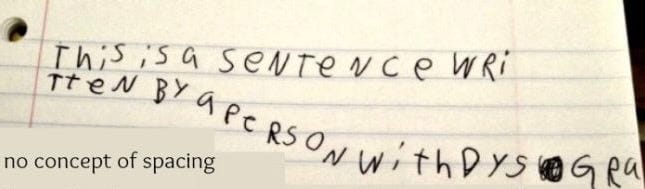 This is a SeNTeNce WRi
TteN BY a PeRSON withDYS GRa
no concept of spacing